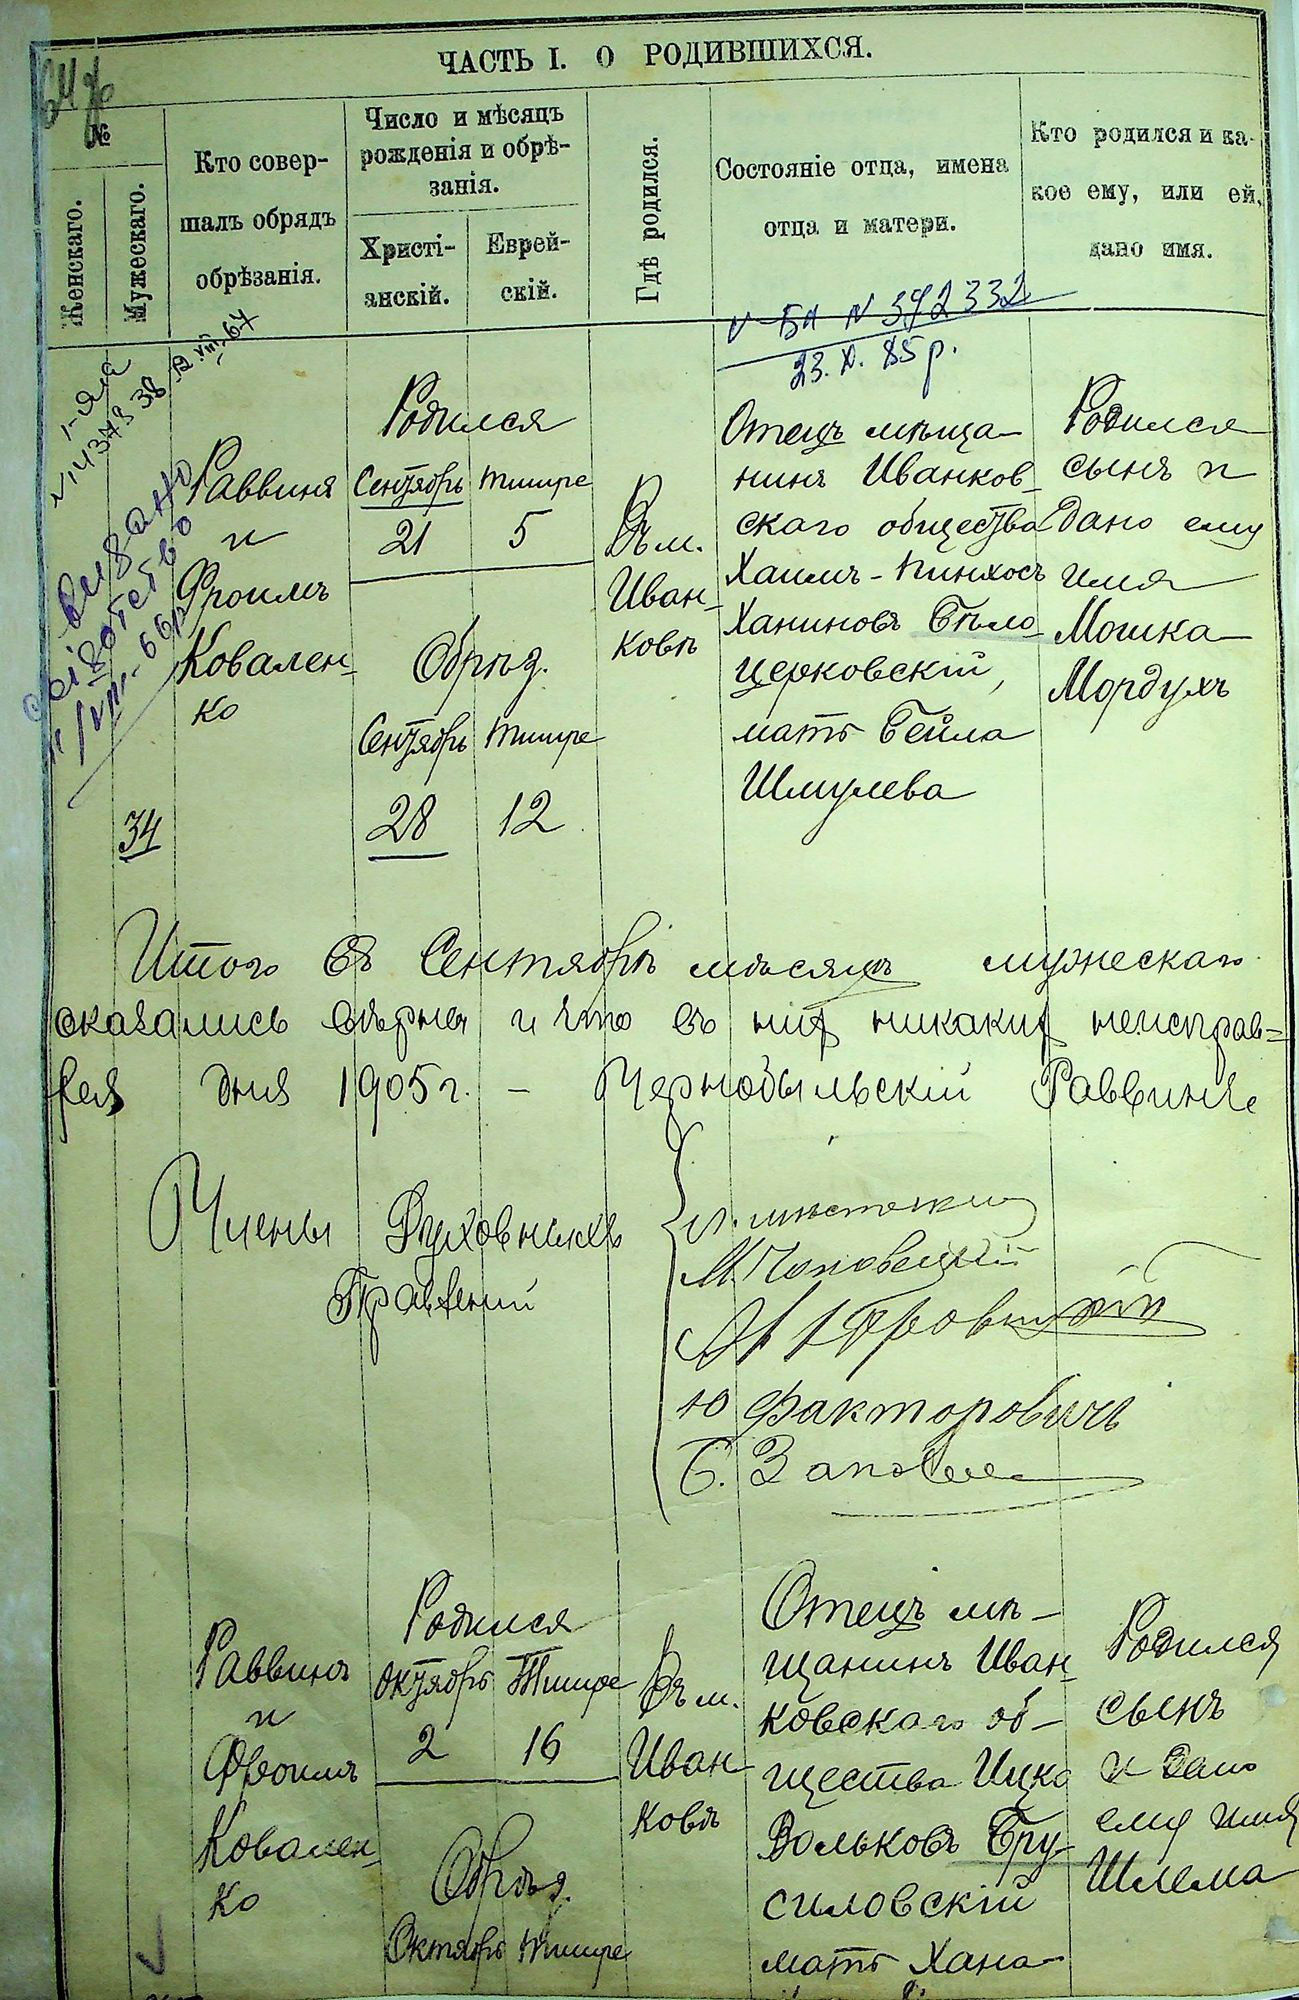 ЧАСТЬ I. О РОДИВШИХСЯ.
№
Женскаго.
Мужескаго.
Кто совер-
шалъ обрядъ
обрѣзанія.
Число и мѣсяцъ
рожденія и обрѣ-
занія.
Христі-
анскій.
Еврей-
скій.
Гдѣ родился.
Состояніе отца, имена
отца и матери.
Кто родился и ка-
кое ему, или ей,
дано имя.
БЛ N 392332
23.X.85р.
видано
свідотство
34
Раввинъ
и
Фроимъ
Ковален-
ко
Родился
Сентябрь Тишре
21 5
Обряд.
Сентябрь Тишре
28 12
Въ м.
Иван-
ковѣ
Отецъ мѣща-
нинъ Иванков-
скаго общества
Хаимъ-Пинхосъ
Ханиновъ Бѣло-
церковскій,
мать Бейла
Шмулева
Родился
сынъ и
дано ему
имя
Мошка
Мордухъ
Итого въ Сентябрѣ мѣсяцѣ мужескаго
оказались вѣрны и что въ них никаких неисправ=
дня 1905 г. - Чернобыльскій Раввинъ
Члены Духовныхъ
Правленій
Ю Факторовичъ
Раввинъ
и
Фроимъ
Ковален-
ко
Родился
Октябрь Тишре
2 16
Обряд.
Октябрь Тишре
Въ м.
Иван-
ковѣ
Отецъ мѣ-
щанинъ Иван-
ковскаго об-
щества Ицко
Вольковъ Бру-
силовскій
мать Хана
Родился
сынъ
и дано
ему имя
Шлема